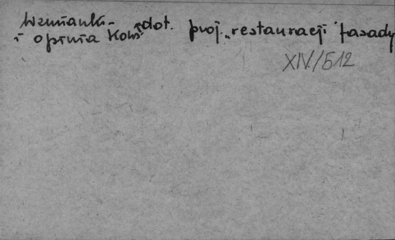 Wzmianki - dot. proj. restauracji fasady
i opinia Kons
XIV/512